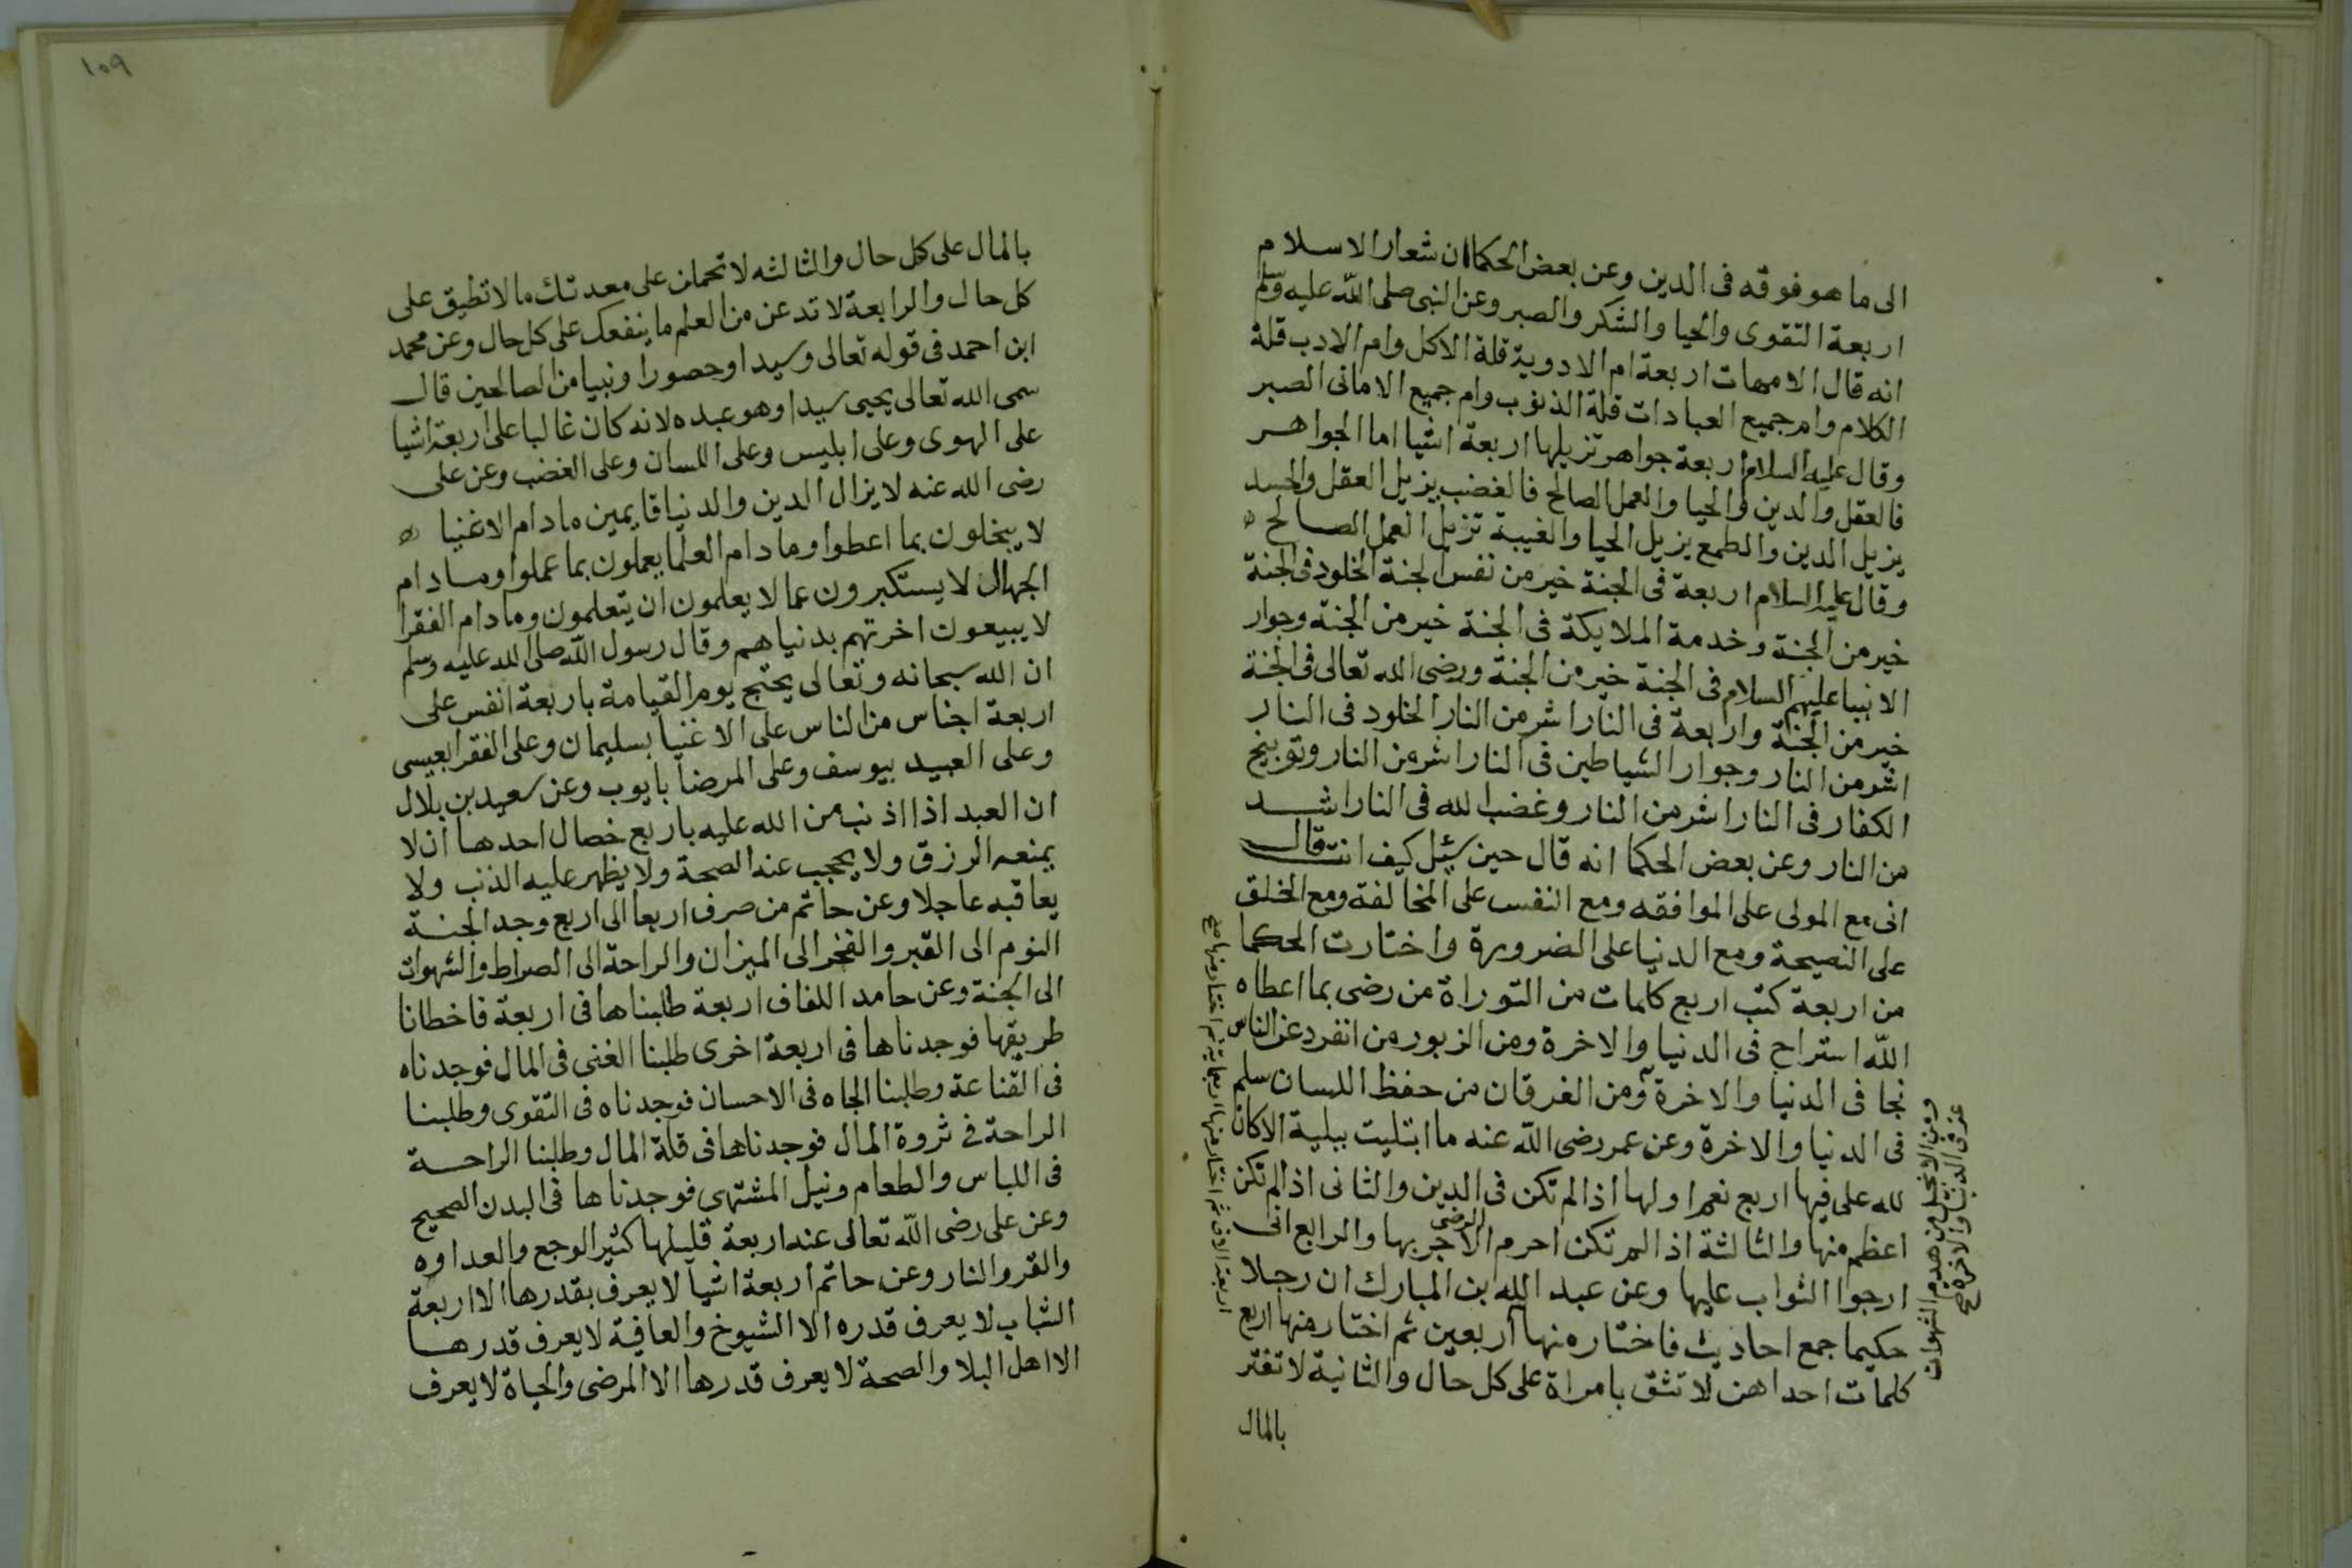 الى ما هو فوقه فى الدين وعن بعض الحكما ان شعار الاسلام
اربعة التقوى والحيا والشكر والصبر وعن النبى صلى الله عليه وسلم
انه قال الامهات اربعة ام الادوية قلة الاكل وام الادب قلة
الكلام وام جميع العبادات قلة الذنوب وام جميع الامانى الصبر
وقال عليه السلام اربعة جواهر تزيلها اربعة اشيا اما الجواهر
فالعقل والدين والحيا والعمل الصالح فالغضب يزيل العقل والحسد
يزيل الدين والطمع يزيل الحيا والغيبة تزيل العمل الصالح ه
وقال عليه السلام اربعة فى الجنة خير من نفس الجنة الخلود فى الجنة
خير من الجنة وخدمة الملايكة فى الجنة خير من الجنة وجوار
الانبيا عليهم السلام فى الجنة خير من الجنة ورضى الله تعالى فى الجنة
خير من الجنة واربعة فى النار اشر من النار الخلود فى النار
اشر من النار وجوار الشياطين فى النار اشر من النار وتوبيخ
الكفار فى النار اشر من النار وغضب الله فى النار اشد
من النار وعن بعض الحكما انه قال حين سئل كيف انت قال
انى مع المولى على الموافقه ومع النفس على المخالفة ومع الخلق
على النصيحة ومع الدنيا على الضرورة واختارت الحكما
من اربعة كتب اربع كلمات من التوراة من رضى بما اعطاه
الله استراح فى الدنيا والاخرة ومن الزبور من انفرد عن الناس
نجا فى الدنيا والاخرة ومن الفرقان من حفظ اللسان سلم
فى الدنيا والاخرة وعن عمر رضى الله عنه ما ابتليت ببلية الا كان
لله على فيها اربع نعم اولها اذا لم تكن فى الدين والثانى اذا لم تكن
اعظم منها والثالثة اذا لم تكن احرم الاجر بها والرابع انى
الرضى
ارجوا الثواب عليها وعن عبد الله بن المبارك ان رجلا
حكيما جمع احاديث فاختار منها اربعين ثم اختار منها اربع
كلمات احداهن لا تثق بامراة على كل حال والثانية لا تغتر
بالمال
ومن الانجيل من هدم الشهوات
عز فى الدنيا والاخرة صح
١٠٩
بالمال على كل حال والثالثه لا تحملن على معدتك ما لا تطيق على
كل حال والرابعة لا تدعن من العلم ما ينفعك على كل حال وعن محمد
ابن احمد فى قوله تعالى وسيدا وحصورا ونبيا من الصالحين قال
سمى الله تعالى يحيى سيدا وهو عبده لانه كان غالبا على اربعة اشيا
على الهوى وعلى ابليس وعلى اللسان وعلى الغضب وعن على
رضى الله عنه لا يزال الدين والدنيا قايمين ما دام الاغنيا ه
لا يبخلون بما اعطوا وما دام العلما يعملون بما عملوا وما دام
الجهال لا يستكبرون عما لا يعلمون ان يتعلمون وما دام الفقرا
لا يبيعون اخرتهم بدنياهم وقال رسول الله صلى الله عليه وسلم
ان الله سبحانه وتعالى يحتج يوم القيامة باربعة انفس على
اربعة اجناس من الناس على الاغنيا بسليمان وعلى الفقرا بعيسى
وعلى العبيد بيوسف وعلى المرضا بايوب وعن سعيد بن بلال
ان العبد اذا اذنب من الله عليه باربع خصال احدها ان لا
يمنعه الرزق ولا يحجب عنه الصحة ولا يظهر عليه الذنب ولا
يعاقبه عاجلا وعن حاتم من صرف اربعا الى اربع وجد الجنة
النوم الى القبر والفخر الى الميزان والراحة الى الصراط والشهوات
الى الجنة وعن حامد اللفاف اربعة طلبناها فى اربعة فاخطانا
طريقها فوجدناها فى اربعة اخرى طلبنا الغنى فى المال فوجدناه
فى القناعة وطلبنا الجاه فى الاحسان فوجدناه فى التقوى وطلبنا
الراحة فى ثروة المال فوجدناها فى قلة المال وطلبنا الراحة
فى اللباس والطعام ونيل المشتهى فوجدناها فى البدن الصحيح
وعن على رضى الله تعالى عنه اربعة قليلها كثير الوجع والعداوه
والقر والنار وعن حاتم اربعة اشيا لا يعرف بقدرها الا اربعة
الشباب لا يعرف قدره الا الشيوخ والعافية لا يعرف قدرها
الا اهل البلا والصحة لا يعرف قدرها الا المرضى والحياة لا يعرف